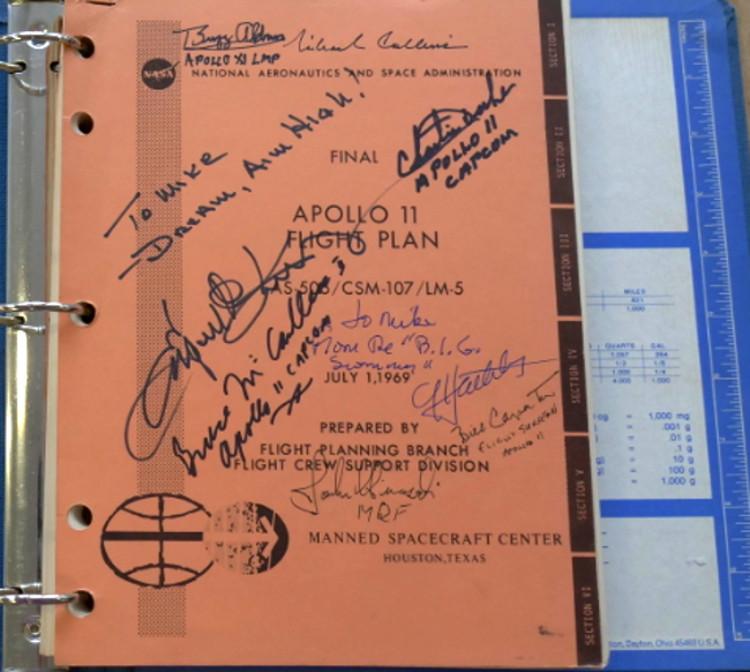 Buzz Aldrin
APOLLO XI LMP
Michael Collins
NASA
NATIONAL AERONAUTICS AND SPACE ADMINISTRATION
To Mike
Dream, Aim High!
Charlie Duke
APOLLO 11
CAPCOM
FINAL
APOLLO 11
FLIGHT PLAN
AS-506/CSM-107/LM-5
To Mike
"B.I.G.
JULY 1, 1969
Bruce McCandless II
Apollo 11 CAPCOM
Bill Carpentier
FLIGHT SURGEON
APOLLO 11
PREPARED BY
FLIGHT PLANNING BRANCH
FLIGHT CREW SUPPORT DIVISION
John Hirasaki
MQF
MANNED SPACECRAFT CENTER
HOUSTON, TEXAS
SECTION I
SECTION II
SECTION III
SECTION IV
SECTION V
SECTION VI
MILES
.621
1.000
QUARTS GAL
1.057 .264
= 1,000 mg
= .001 g
= .01 g
= .1 g
= 10 g
= 100 g
= 1,000 g
Dayton, Ohio 45463 U.S.A.